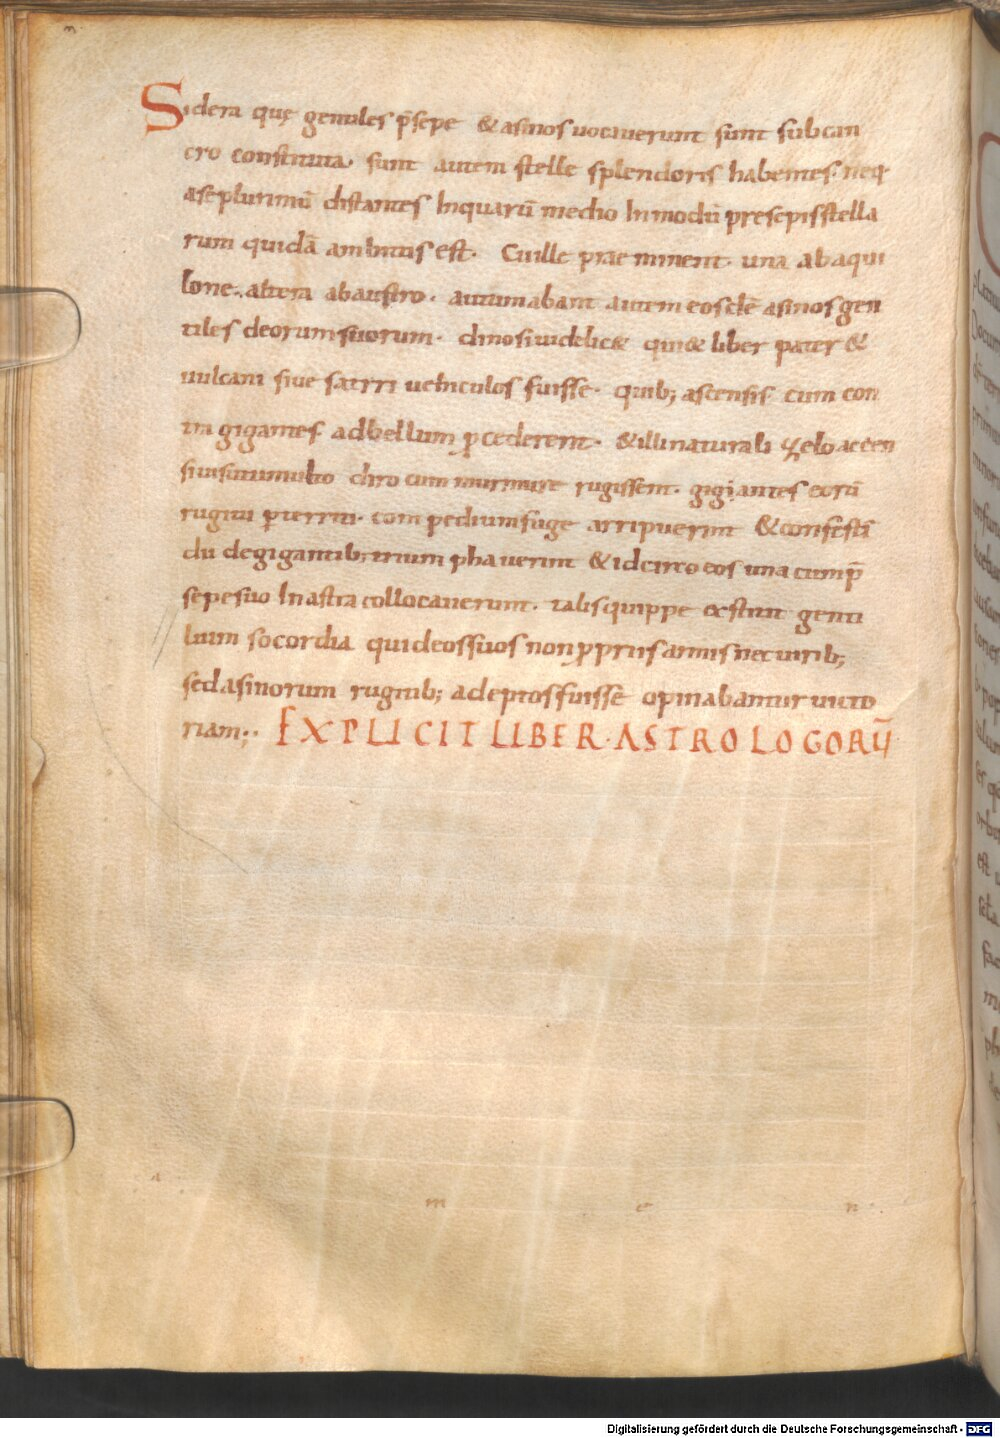 Sidera quę gentiles p̄sepe & asinos uocauerunt sunt sub can
cro constituta. sunt autem stelle splendoris habentes. neq
ase plurimū distantes Inquarū medio Inmodū presepis stella
rum quidā ambitus est. Cui ille prae minent. una ab aqui
lone. altera ab austro. autumabant autem eosdē asinos gen
tiles deorum suorum. duios uidelic& quia& liber pater &
uulcani siue satiri uehiculos fuisse. quib; ascensis cum con
tra gigantes ad bellum pcederent. & illi naturali zelo accen
si insitumulto diro cum murmure rugissent. gigantes eorū
rugitu pterriti. com pedium fuge arripuerint & consesti
du degigantib; trium phauerint & idcirco eos una cum p̄
sepe suo In astra collocauerunt. talis quippe exstitit genti
lium socordia qui deos suos non pprus armis nec uirib;
sed asinorum rugitib; adeptos fuisse opinabantur uicto
riam;. EXPLICIT LIBER. ASTROLOGORŪ
A m e n .
Digitalisierung gefördert durch die Deutsche Forschungsgemeinschaft - DFG